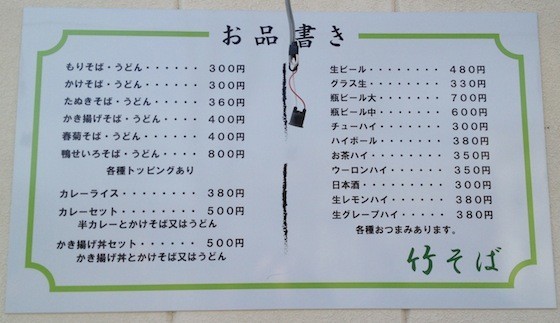 お品書き
もりそば・うどん・・・・・・300円
かけそば・うどん・・・・・・300円
たぬきそば・うどん・・・・・360円
かき揚げそば・うどん・・・・400円
春菊そば・うどん・・・・・・400円
鴨せいろそば・うどん・・・・800円
各種トッピングあり
カレーライス・・・・・・・・380円
カレーセット・・・・・・・・500円
半カレーとかけそば又はうどん
かき揚げ丼セット・・・・・・500円
かき揚げ丼とかけそば又はうどん
生ビール・・・・・・・・480円
グラス生・・・・・・・・330円
瓶ビール大・・・・・・・700円
瓶ビール中・・・・・・・600円
チューハイ・・・・・・・300円
ハイボール・・・・・・・380円
お茶ハイ・・・・・・・・350円
ウーロンハイ・・・・・・350円
日本酒・・・・・・・・・300円
生レモンハイ・・・・・・380円
生グレープハイ・・・・・380円
各種おつまみあります。
竹そば